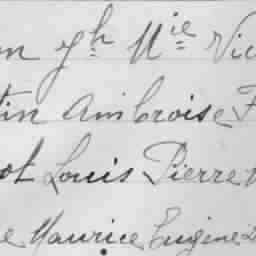 Jh Mie Vic
tin Ambroise F
ot Louis Pierre
e Maurice Eugène